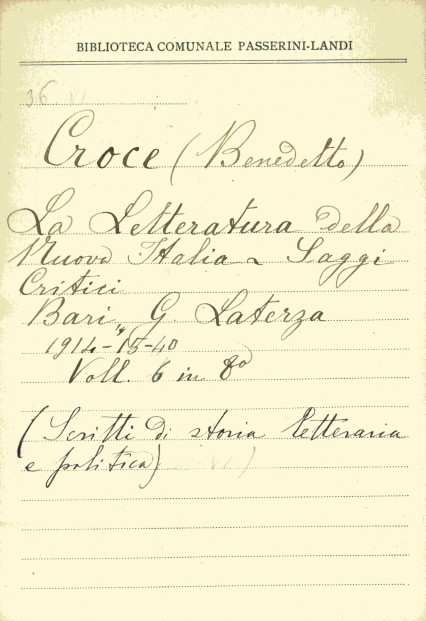 BIBLIOTECA COMUNALE PASSERINI-LANDI
36 VI
Croce (Benedetto)
La Letteratura della
Nuova Italia ~ Saggi
Critici
Bari, G. Laterza
1914-15-40
Voll. 6 in 8º
(Scritti di storia letteraria
e politica)